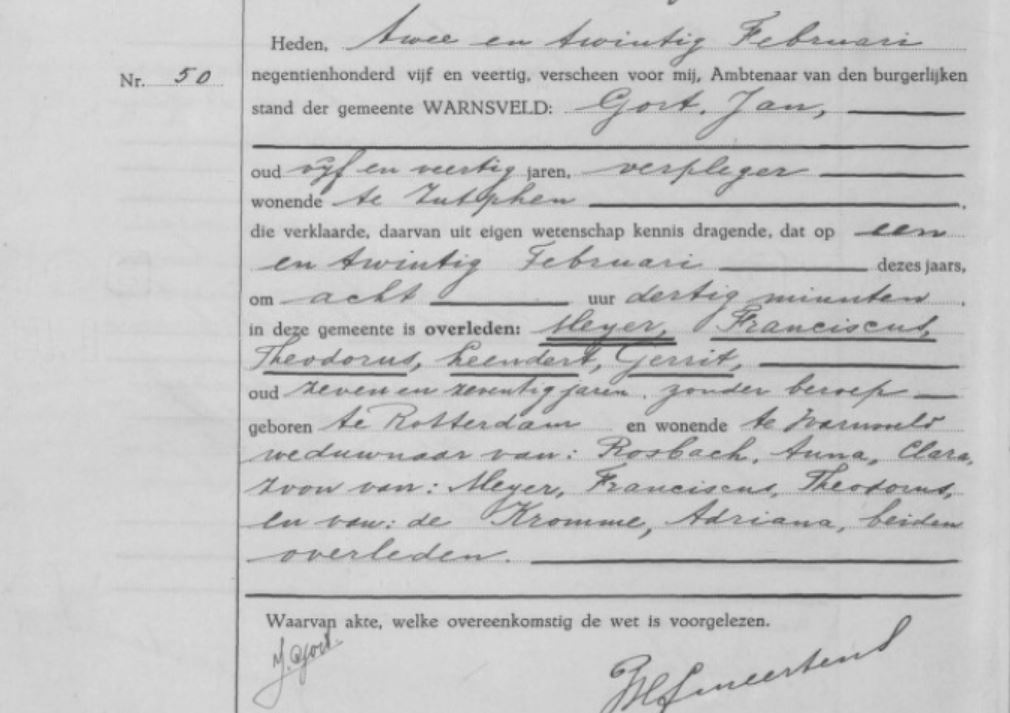 Heden, twee en twintig Februari
Nr. 50
negentienhonderd vijf en veertig, verscheen voor mij, Ambtenaar van den burgerlijken
stand der gemeente WARNSVELD: Gort, Jan,
oud vijf en veertig jaren, verpleger
wonende te Zutphen,
die verklaarde, daarvan uit eigen wetenschap kennis dragende, dat op een
en twintig Februari dezes jaars,
om acht uur dertig minuten,
in deze gemeente is overleden: Meyer, Franciscus,
Theodorus, Leendert, Gerrit,
oud zeven en zeventig jaren, zonder beroep
geboren te Rotterdam en wonende te Warnsveld
weduwnaar van: Rosbach, Anna, Clara,
zoon van: Meyer, Franciscus, Theodorus,
en van: de Kromme, Adriana, beiden
overleden.
Waarvan akte, welke overeenkomstig de wet is voorgelezen.
J. Gort.